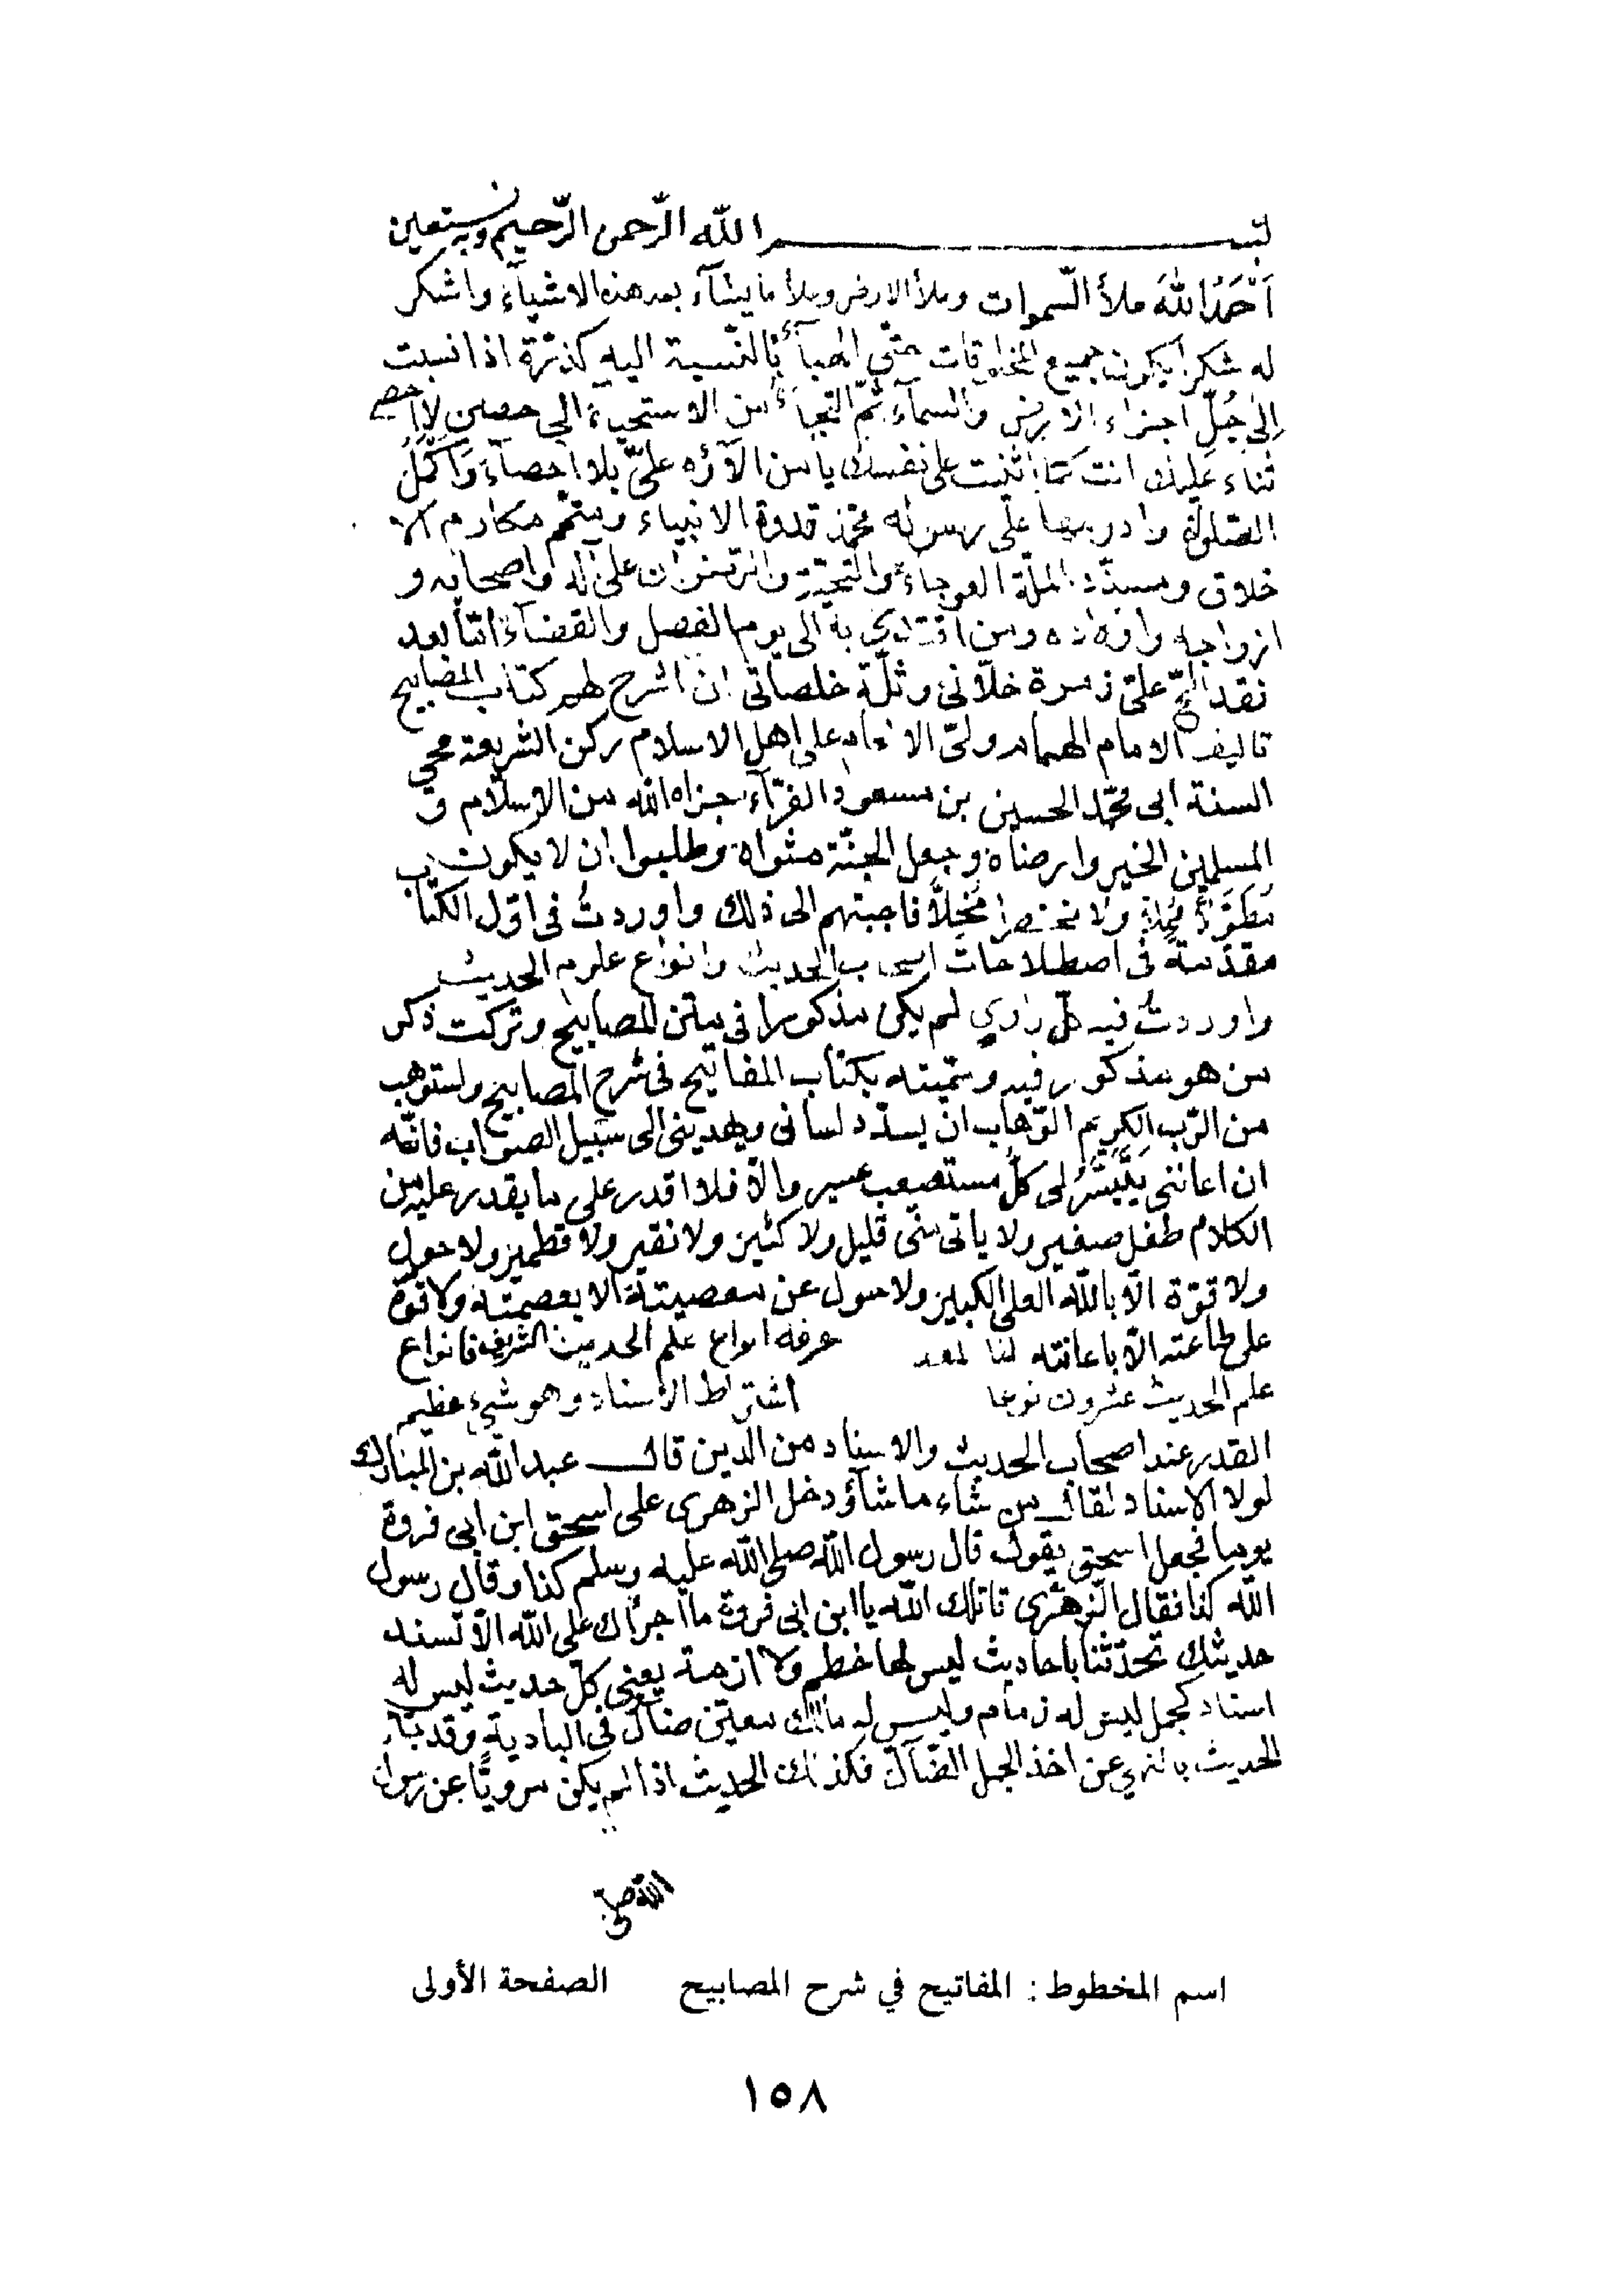 بسم الله الرّحمن الرّحيم وبه نستعين
اَحْمَدُ اللهَ ملأ السّموات وملأ الارض وملأ ما يشآء بعد هذه الاشيآء واشكر
له شكرا يكون جميع المخلوقات حتّى الهبآء بالنّسبة اليه كذرّة اذا نسبت
الى جُلِّ اجزاء الارض والسمآء ثمّ التجاء من الاستحياء الى حصن لا احصى
ثناء عليك انت كما اثنيت على نفسك يا من آلاؤه علىّ بلا احصآء وَاَكْمَلُ
الصّلوة وادومها على رسوله محمّد قدوة الانبياء ومتمّم مكارم الا
خلاق ومسدّد الملّة العوجاء والتحيّة والرّضوان على آله واصحابه و
ازواجه واولاده ومن اقتدى به الى يوم الفصل والقضآء امّا بعد
فقد الحّ علىّ زمرة خلّانى وثلّة خلصانى ان اشرح لهم كتاب المصابيح
تاليف الامام الهمام ولىّ الانعام على اهل الاسلام ركن الشريعة محيى
السنة ابى محمّد الحسين بن مسعود الفرّآء جزاه الله من الاسلام و
المسلمين الخير وارضاه وجعل الجنّة مثواه وطلبوا ان لا يكون
مُطَوَّلًا مُمِلًّا ولا مختصرا مُخِلًّا فاجبتهم الى ذلك واوردتُ فى اوّل الكتاب
مقدّمةً فى اصطلاحات اصحاب الحديث وانواع علوم الحديث
واوردتُ فيه كلّ راوي لم يكن مذكورا فى متن المصابيح وتركت ذكر
من هو مذكور فيه وسمّيته بكتاب المفاتيح فى شرح المصابيح واستوهب
من الرّب الكريم الوّهاب ان يسدّد لسانى ويهدينى الى سبيل الصواب فانّه
ان اعاننى يَتَيَسَّرُ لى كلّ مستصعب عسير والّا فلا اقدر على ما يقدر عليه من
الكلام طفل صغير ولا ياتى منّى قليل ولا كثير ولا نقير ولا قطمير ولا حول
ولا قوّة الّا بالله العلى الكبير ولا حول عن معصيته الا بعصمته ولا قوّة
على طاعته الّا باعانته لنا معرفة انواع علم الحديث الشريف فانواع
علم الحديث عشرون نوعا اشتراط الاسناد وهو شيء عظيم
القدر عند اصحاب الحديث والاسناد من الدين قال عبد الله بن المبارك
لولا الاسناد لقال من شاء ما شآء ودخل الزهرى على اسحق ابن ابى فروة
يوما فجعل اسحق يقول قال رسول الله صلى الله عليه وسلم كذا وقال رسول
الله كذا فقال الزّهرى قاتلك الله يا ابن ابى فروة ما اجرأك على الله الّا تسند
حديثك تحدّثنا باحاديث ليس لها خطم ولا ازمة يعنى كلّ حديث ليس له
اسناد كجمل ليس له زمام وليس له مالك معيّن ضالّ فى البادية وقد جآء
الحديث بالنهي عن اخذ الجمل الضّآلّ فكذلك الحديث اذا لم يكن مرويًّا عن رسول
الله صلى
اسم المخطوط: المفاتيح في شرح المصابيح الصفحة الأولى
١٥٨